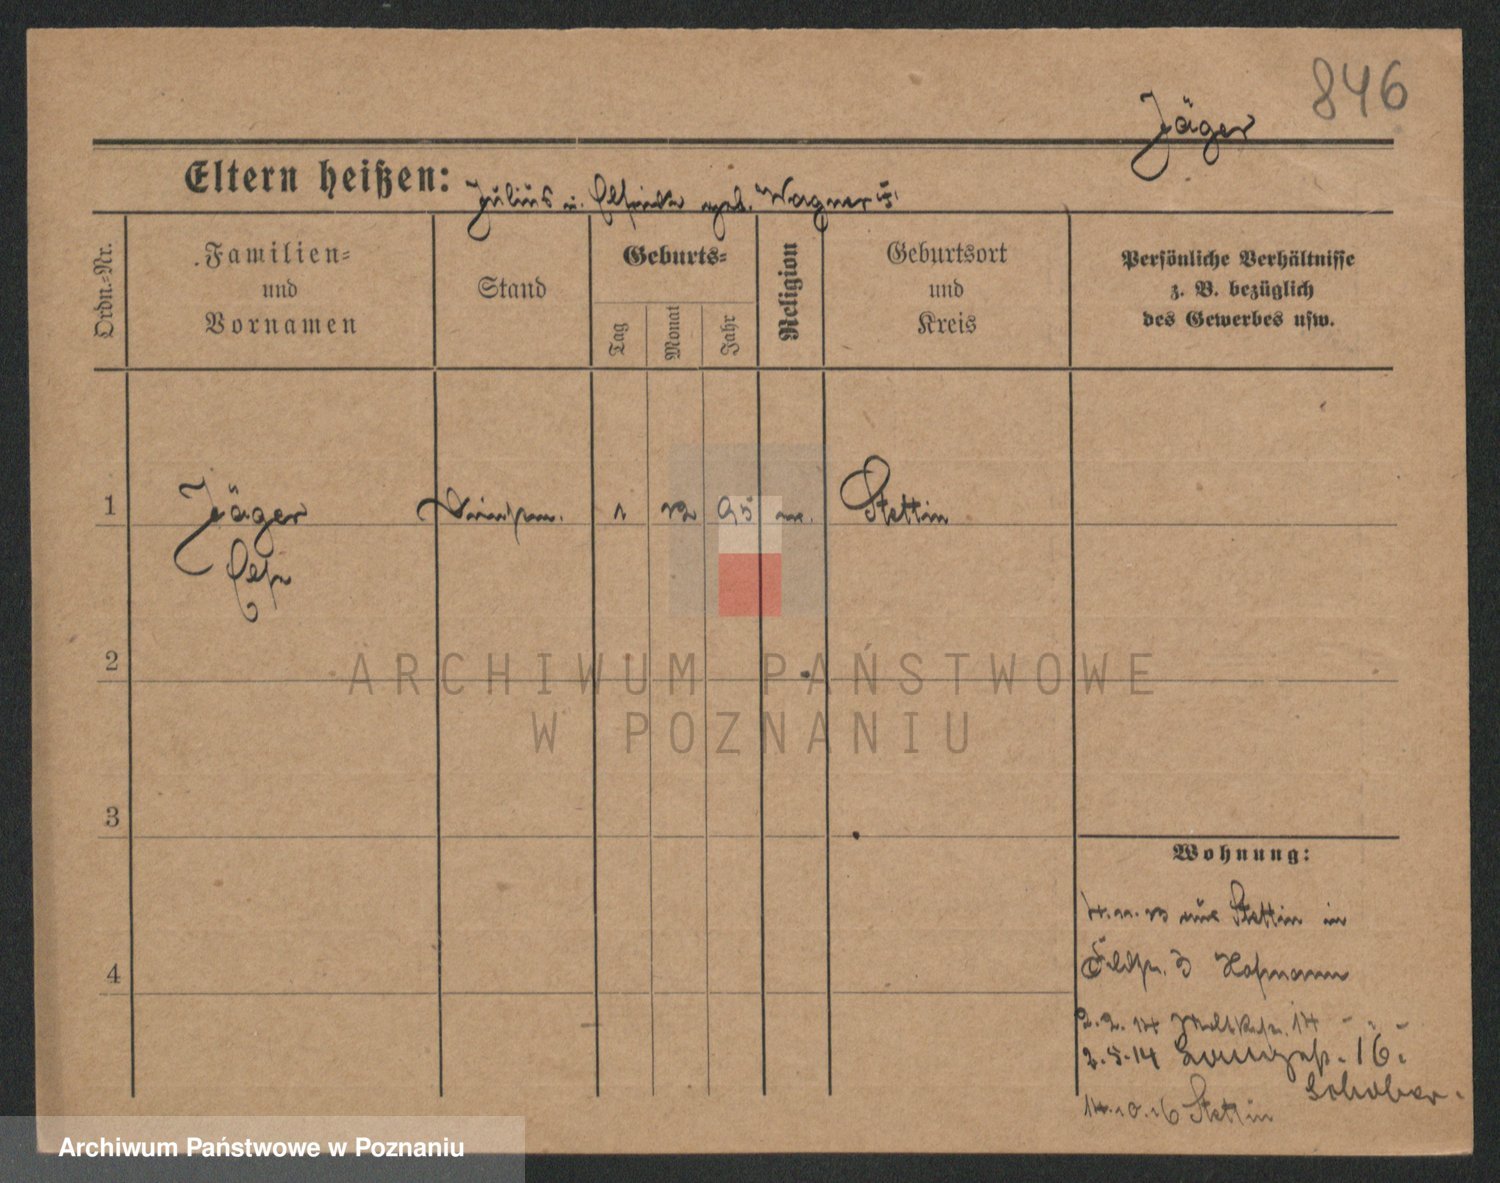 846
Jäger
Eltern heißen: Julius u. geb. Wagner
Ordn.-Nr.
Familien-
und
Vornamen
Stand
Geburts-
Tag
Monat
Jahr
Religion
Geburtsort
und
Kreis
Persönliche Verhältnisse
z. B. bezüglich
des Gewerbes usw.
1 Jäger 1 12 95 Stettin
2
3
4
Wohnung:
aus Stettin in
3 Hofmann
2.2.14 14
2.5.14 16
Schober
Stettin
ARCHIWUM PAŃSTWOWE
W POZNANIU
Archiwum Państwowe w Poznaniu